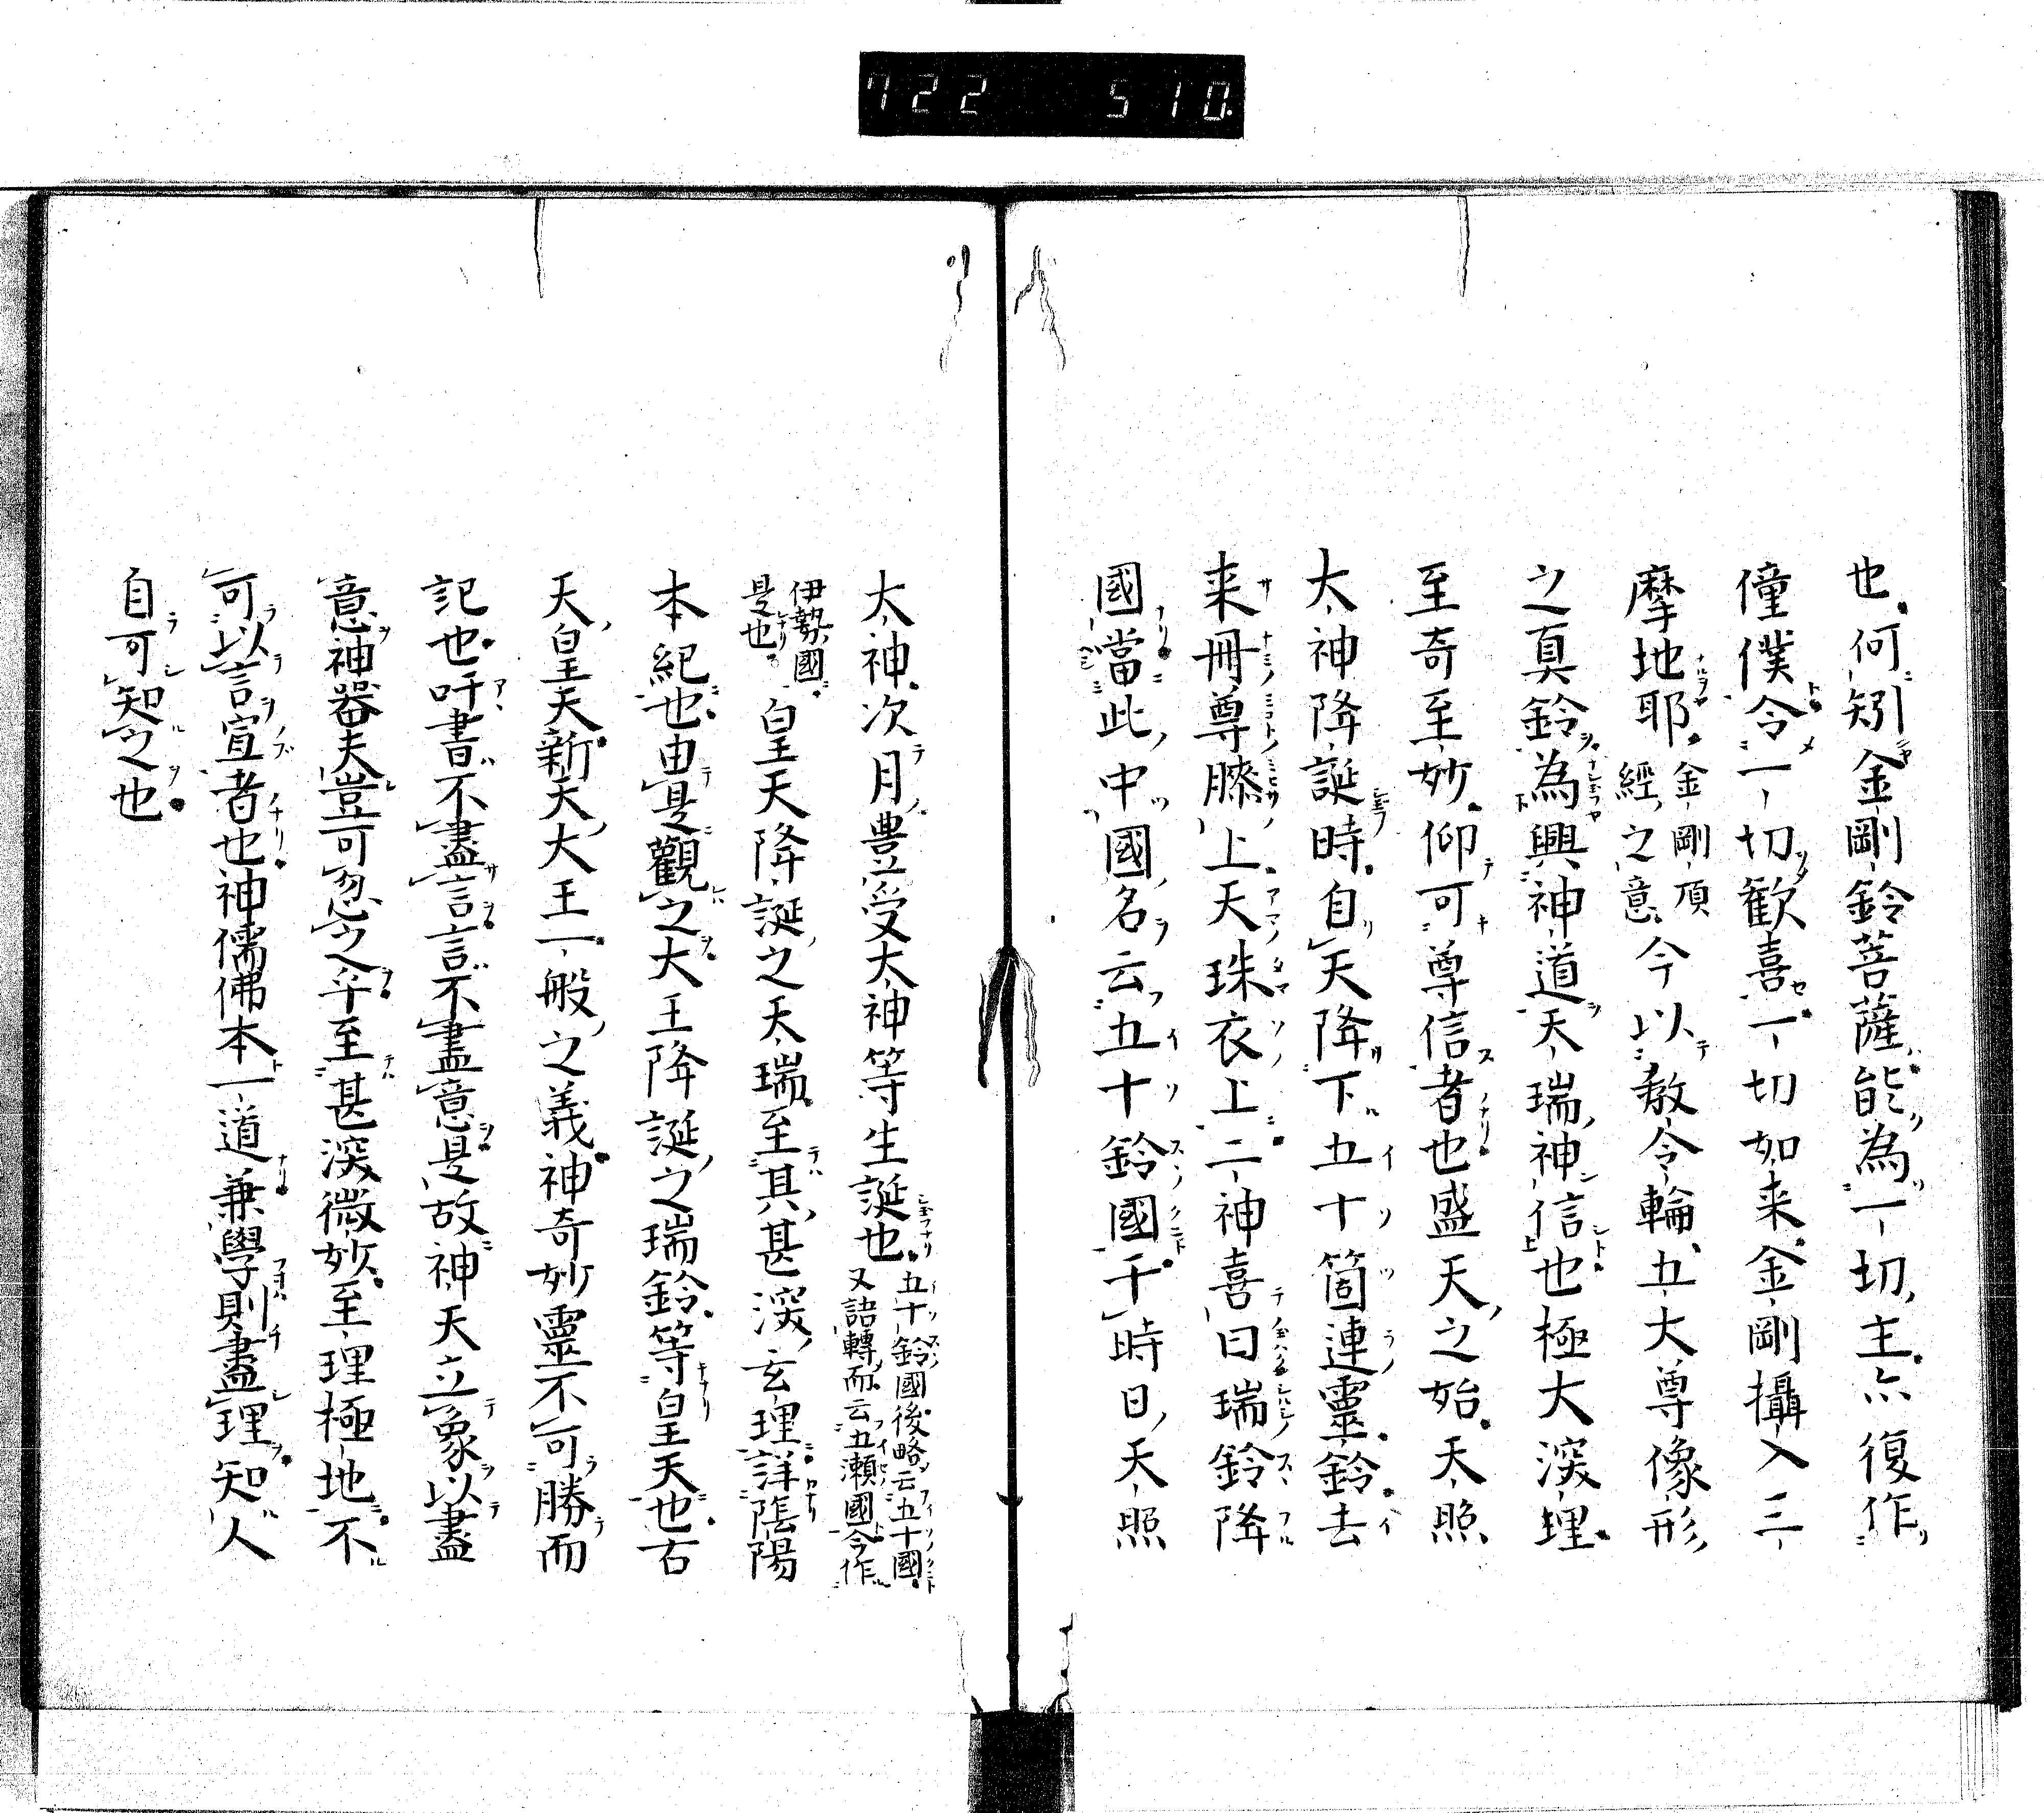 722 510
也何矧金剛鈴菩薩能為一切主亦復作
僮僕令一切歡喜一切如来金剛攝入三
摩地耶金剛頂經之意今以教令輪五大尊像形
之真鈴為興神道天瑞神信也極大深理
至奇至妙仰可尊信者也盛天之始天照
太神降誕時自天降下五十箇連靈鈴去
来冊尊膝上天珠衣上二神喜曰瑞鈴降
國當此中國名云五十鈴國干時日天照
太神次月豊受太神等生誕也五十鈴國後略云五十國又語轉而云五瀬國今作
伊勢國是也皇天降誕之天瑞至其甚深玄理詳陰陽
本紀也由是觀之大王降誕之瑞鈴等皇天也古
天皇天新天大王一般之義神奇妙靈不可勝而
記也吁書不盡言言不盡意是故神天立象以盡
意神器夫豈可忽之乎至甚深微妙至理極地不
可以言宣者也神儒佛本一道兼學則盡理知人
自可知之也